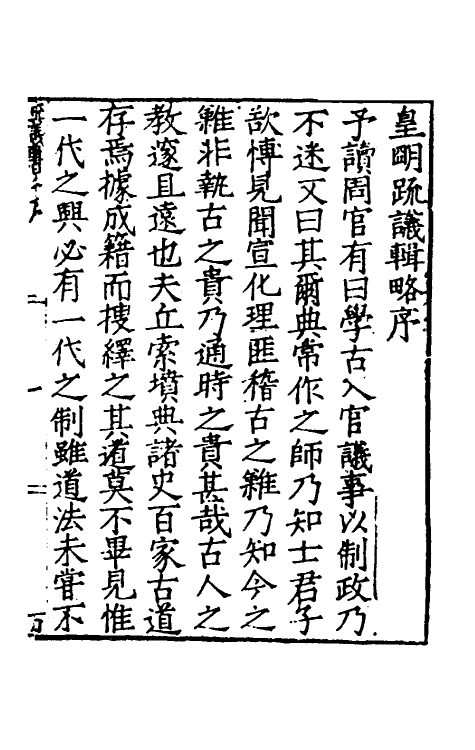 皇明疏議輯略序
予讀周官有曰學古入官議事以制政乃
不迷又曰其爾典常作之師乃知士君子
欲博見聞宣化理匪稽古之難乃知今之
難非執古之貴乃通時之貴甚哉古人之
教邃且遠也夫丘索墳典諸史百家古道
存焉據成籍而搜繹之其道莫不畢見惟
一代之興必有一代之制雖道法未甞不